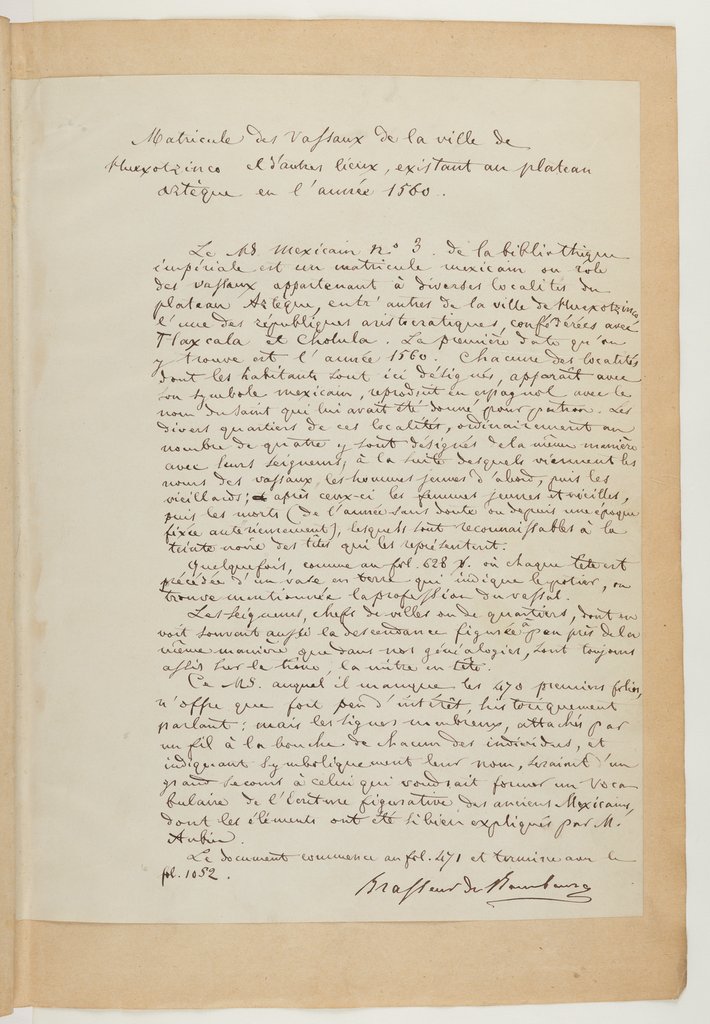 Matricule des Vassaux de la ville de
Huexotzinco et d'autres lieux, existant au plateau
Aztèque en l'année 1560.
Le MS. mexicain n° 3. de la bibliothèque
impériale est un matricule mexicain ou role
des vassaux appartenant à diverses localités du
plateau Aztèque, entr'autres de la ville de Huexotzinco,
l'une des républiques aristocratiques, confédérées avec
Tlaxcala et Cholula. La première date qu'on
y trouve est l'année 1560. Chacune des localités
dont les habitants sont ici désignés, apparaît avec
son symbole mexicain, reproduit en espagnol avec le
nom du saint qui lui avait été donné pour patron. Les
divers quartiers de ces localités, ordinairement au
nombre de quatre y sont désignés de la même manière
avec leurs seigneurs, à la suite desquels viennent les
noms des vassaux, les hommes jeunes d'abord, puis les
vieillards; après ceux-ci les femmes jeunes et vieilles,
puis les morts (de l'année sans doute ou depuis une époque
fixée antérieurement), lesquels sont reconnaissables à la
teinte noire des têtes qui les représentent.
Quelquefois, comme au fol. 628 v. où chaque tête est
précédée d'un vase en terre qui indique le potier, on
trouve mentionnée la profession du vassal.
Les seigneurs, chefs de villes ou de quartiers, dont on
voit souvent aussi la descendance figurée à peu près de la
même manière que dans nos généalogies, sont toujours
assis sur le trône, la mitre en tête.
Ce MS. auquel il manque les 470 premiers folios,
n'offre que fort peu d'intérêt, historiquement
parlant: mais les signes nombreux, attachés par
un fil à la bouche de chacun des individus, et
indiquant symboliquement leur nom, seraient d'un
grand secours à celui qui voudrait former un Voca
bulaire de l'Ecriture figurative des anciens Mexicains,
dont les éléments ont été si bien expliqués par M.
Aubin.
Le document commence au fol. 471 et termine au
fol. 1052.
Brasseur de Bourbourg